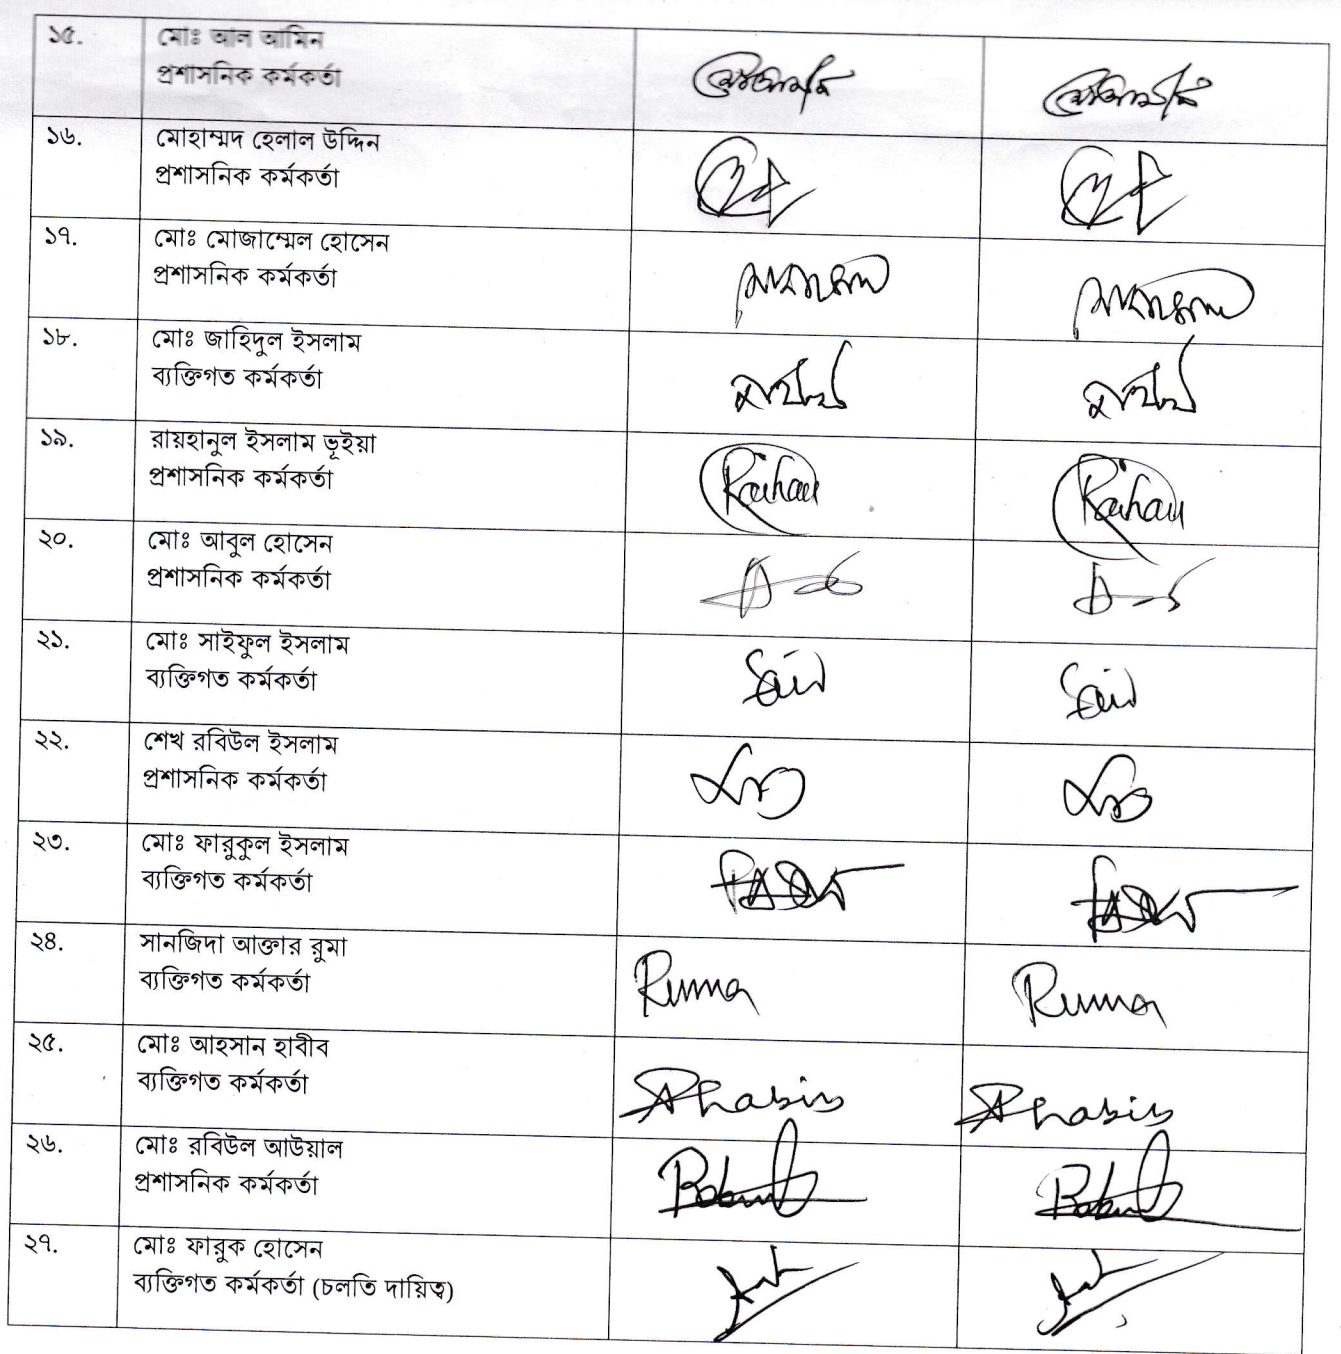 ১৫. মোঃ আল আমিন
প্রশাসনিক কর্মকর্তা
১৬. মোহাম্মদ হেলাল উদ্দিন
প্রশাসনিক কর্মকর্তা
১৭. মোঃ মোজাম্মেল হোসেন
প্রশাসনিক কর্মকর্তা
১৮. মোঃ জাহিদুল ইসলাম
ব্যক্তিগত কর্মকর্তা
১৯. রায়হানুল ইসলাম ভূইয়া
প্রশাসনিক কর্মকর্তা
Raihan Raihan
২০. মোঃ আবুল হোসেন
প্রশাসনিক কর্মকর্তা
২১. মোঃ সাইফুল ইসলাম
ব্যক্তিগত কর্মকর্তা
২২. শেখ রবিউল ইসলাম
প্রশাসনিক কর্মকর্তা
২৩. মোঃ ফারুকুল ইসলাম
ব্যক্তিগত কর্মকর্তা
২৪. সানজিদা আক্তার রুমা
ব্যক্তিগত কর্মকর্তা
Ruma Ruma
২৫. মোঃ আহসান হাবীব
ব্যক্তিগত কর্মকর্তা
Ahabib Ahabib
২৬. মোঃ রবিউল আউয়াল
প্রশাসনিক কর্মকর্তা
২৭. মোঃ ফারুক হোসেন
ব্যক্তিগত কর্মকর্তা (চলতি দায়িত্ব)